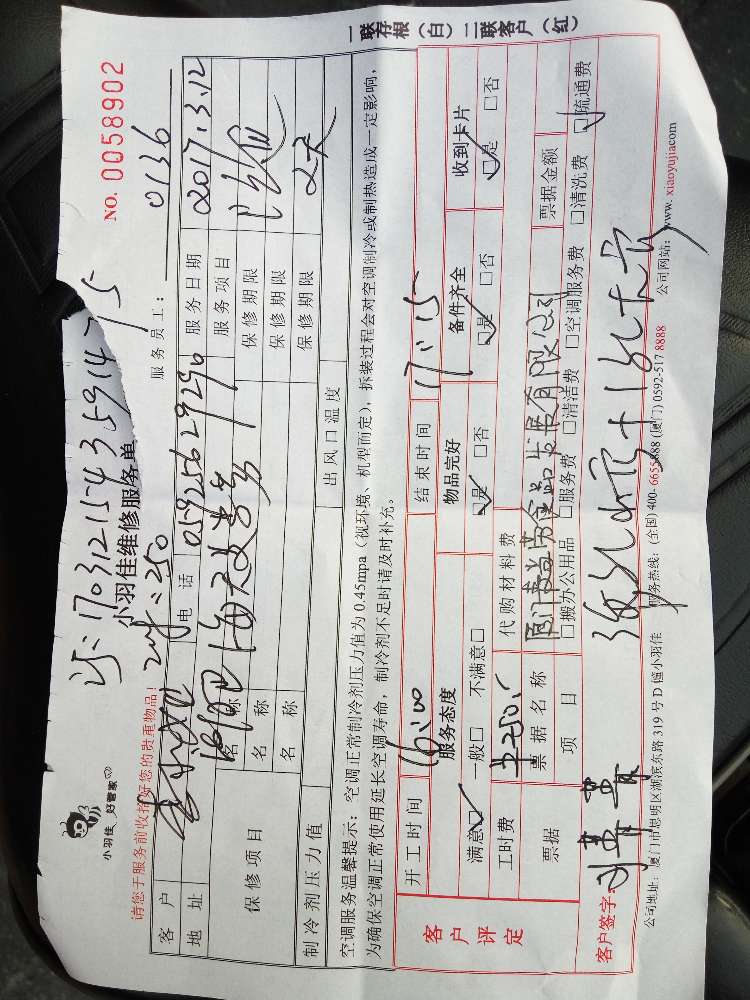 NO. 0058902
小羽佳 好管家
17031215435914 75
小羽佳维修服务单
250
请您于服务前收拾好您的贵重物品!
服务员工: 0136
客户 电话 05925629296 服务日期 2017.3.12
地址 服务项目
保修项目 名称 保修期限
名称 保修期限
名称 保修期限 2天
制冷剂压力值 出风口温度
空调服务温馨提示:空调正常制冷剂压力值为 0.45mpa(视环境、机型而定),拆装过程会对空调制冷或制热造成一定影响,
为确保空调正常使用延长空调寿命,制冷剂不足时请及时补充。
一联存根(白)二联客户(红)
客户评定
开工时间 16:00 结束时间 17:15
服务态度 物品完好 备件齐全 收到卡片
满意□ 一般□ 不满意□ □是 □否 □是 □否 □是 □否
工时费 250 代购材料费
票据 票据名称 票据金额
项目 □搬办公用品 □服务费 □清洁费 □空调服务费 □清洗费 □疏通费
客户签字:
公司地址:厦门市思明区湖滨东路 319 号 D 幢小羽佳 服务热线:(全国) 400-6655888 (厦门) 0592-517 8888 公司网站:www.xiaoyujia.com